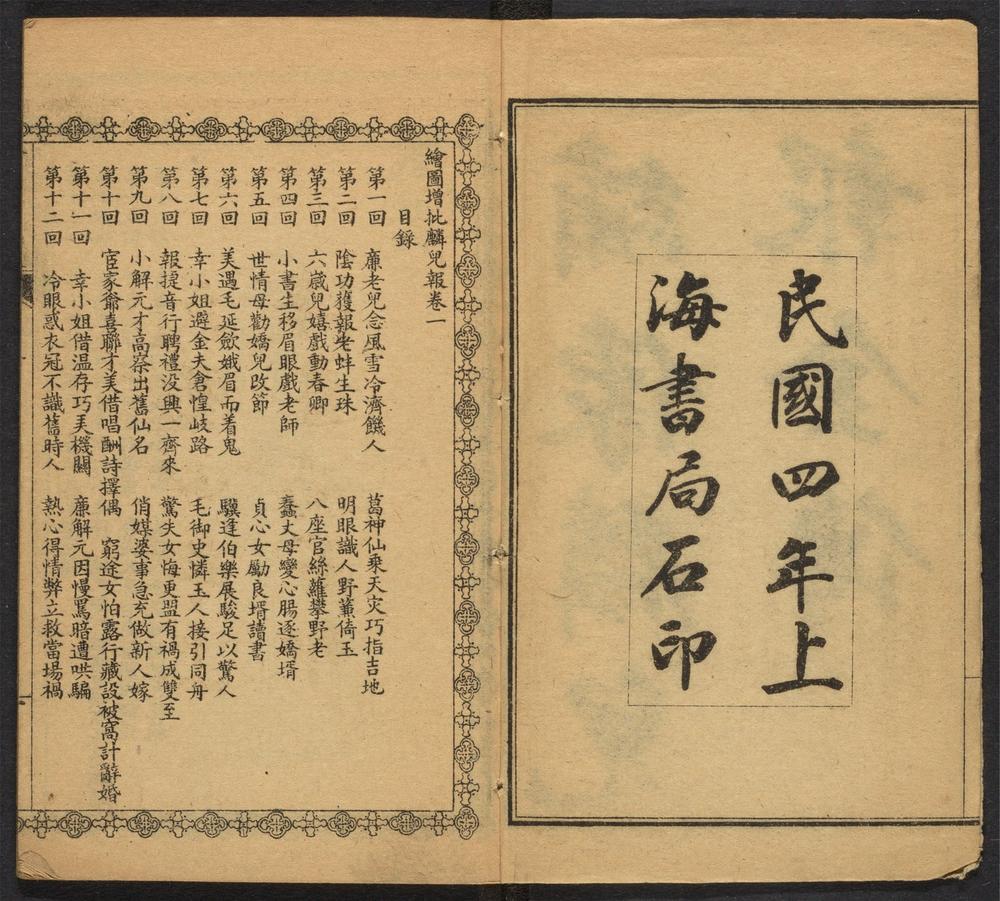 民國四年上
海書局石印
繪圖增批麟兒報卷一
目錄
第一回 廉老兒念風雪冷濟饑人 葛神仙乘天災巧指吉地
第二回 陰功獲報老蚌生珠 明眼識人野蒹倚玉
第三回 六歲兒嬉戲動春卿 八座官絲蘿攀野老
第四回 小書生移眉眼戲老師 蠢丈母變心腸逐嬌壻
第五回 世情母勸嬌兒改節 貞心女勵良壻讀書
第六回 美遇毛延歛娥眉而着鬼 驥逢伯樂展駿足以驚人
第七回 幸小姐避金夫倉惶岐路 毛御史憐玉人接引同舟
第八回 報捷音行聘禮没興一齊來 驚失女悔更盟有禍成雙至
第九回 小解元才高察出舊仙名 俏媒婆事急充做新人嫁
第十回 宦家爺喜聯才美借唱酬詩擇偶 窮途女怕露行藏設被窩計辭婚
第十一回 幸小姐借温存巧弄機關 廉解元因慢罵暗遭哄騙
第十二回 冷眼惑衣冠不識舊時人 熱心得情弊立救當場禍